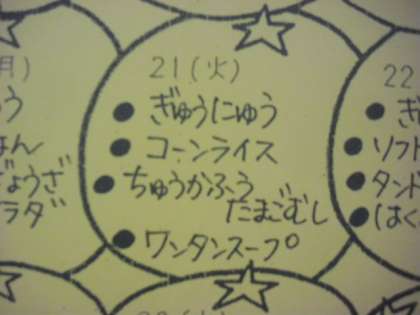 21(火)
ぎゅうにゅう
コーンライス
ちゅうかふう
たまごむし
ワンタンスープ
月)
う
はん
ょうざ
ラダ
22
ぎ
ソフト
タンド
はく